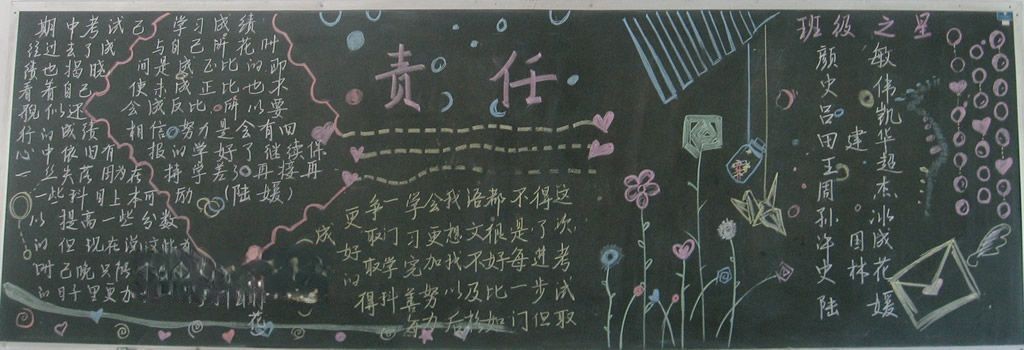 责任
期中考试已
经过去了成
绩也揭晓
看着自己
貌似还
行的成绩
心中依旧有
一丝失落因为在
一些科目上本可
以提高一些分数
的但现在说这些为
时已晚只能
的日子里更加
学习成绩
与自己所花时
间是成正比的即
使未成正比也不
会成反比所以要
相信努力是会有回
报的学好了继续保
持学差了再接再
励(陆媛)
这次考试取
得了进步但
不是每一门
都很好比如
语文不及
我想找以后
会更加努力
学习完善
一门学科
争取取得
更好的
成
花
班级之星
颜敏
史伟
吕凯
田建华
王超
周杰
孙冰
许国成
史林花
陆媛